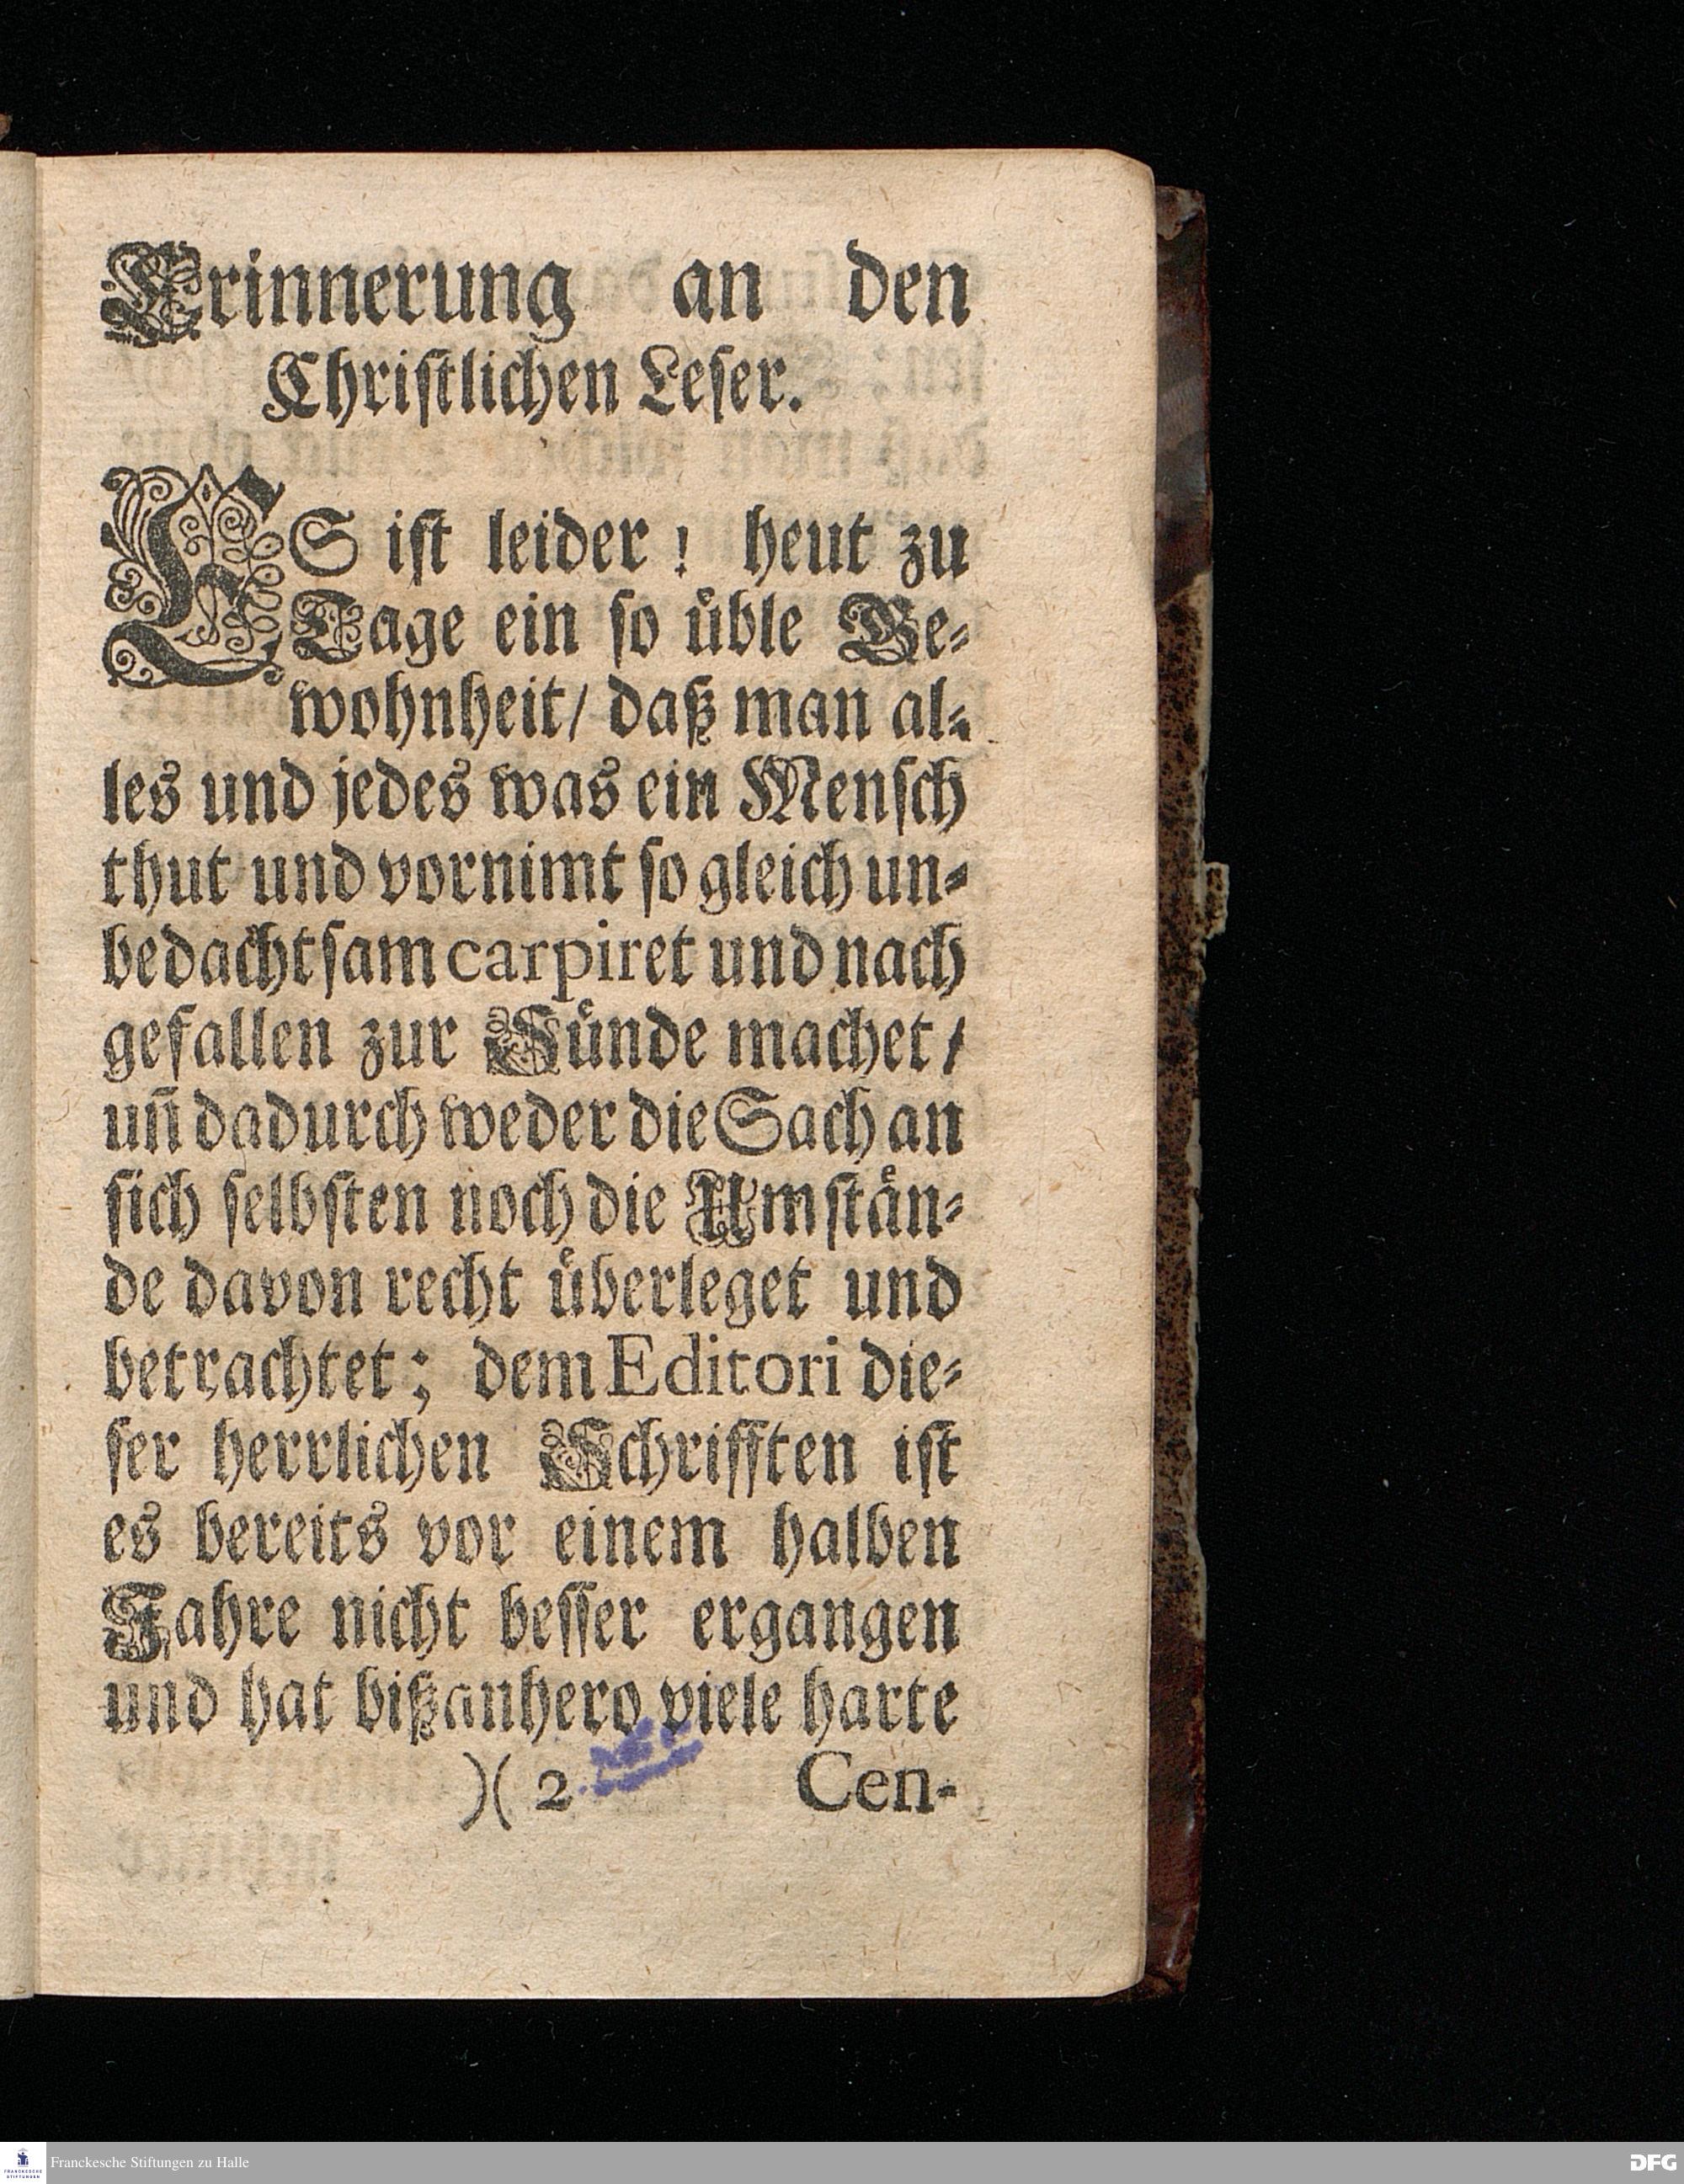 Erinnerung an den
Chriſtlichen Leſer.
ES iſt leider! heut zu
Tage ein ſo uͤble Ge⸗
wohnheit/ daß man al⸗
les und jedes was ein Menſch
thut und vornimt ſo gleich un⸗
bedachtſam carpiret und nach
gefallen zur Suͤnde machet/
uñ dadurch weder die Sach an
ſich ſelbſten noch die Umſtaͤn⸗
de davon recht uͤberleget und
betrachtet; dem Editori die⸗
ſer herrlichen Schrifften iſt
es bereits vor einem halben
Jahre nicht beſſer ergangen
und hat bißanhero viele harte
)( 2 Cen-
Franckesche Stiftungen zu Halle
FRANCKESCHE
STIFTUNGEN
DFG